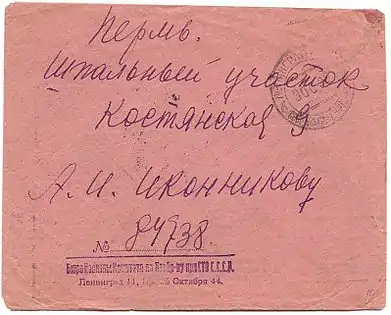 Пермь.
Шпальный участок
Костянская 9
А. И. Иконникову
№ 84738.
Бюро
при СТО С.С.С.Р.
Ленинград 11, Октября 44.